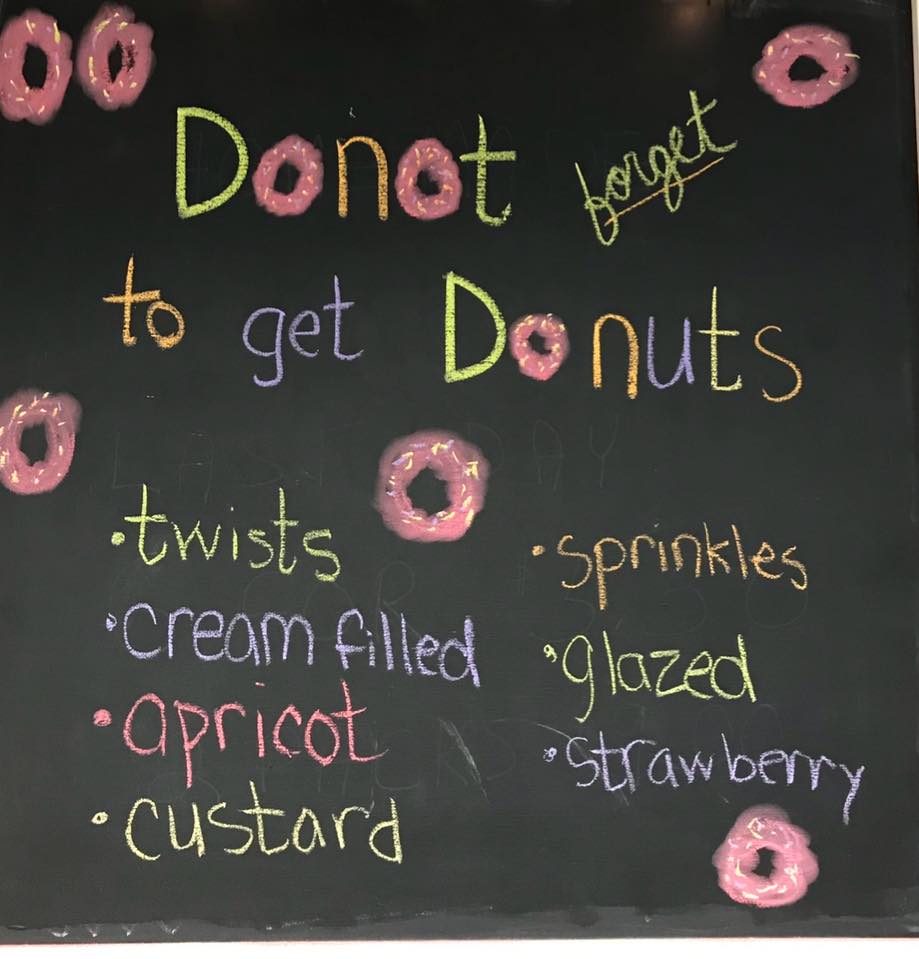 Donot forget
to get Donuts
• twists
• cream filled
• apricot
• custard
• sprinkles
• glazed
• strawberry
LAST DAY
FOR